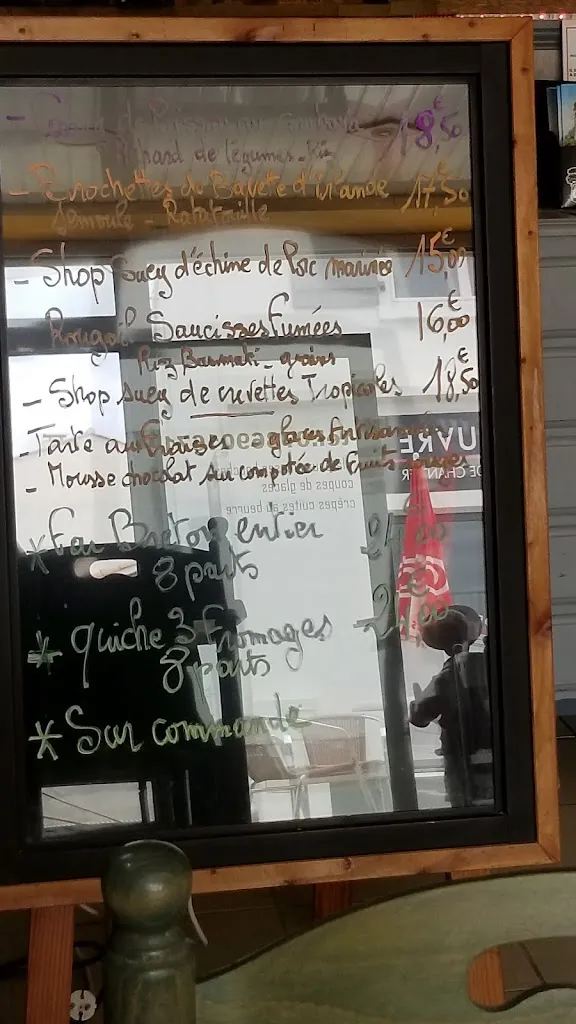 de Poisson au 18,50€
de légumes - Riz
- Brochettes de Bavette d'irlande 17,50€
Semoule - Ratatouille
- Shop Suey d'échine de Porc marinée 15,00€
Rougail Saucisses fumées 16,00€
Riz Basmati - grains
- Shop Suey de crevettes Tropicales 18,50€
- Tarte aux fraises glaces Artisanales
- Mousse chocolat sur compotée de fruits rouges
coupes de glaces
crêpes cuites au beurre
UVRE
* Far Breton entier
8 parts
* quiche 3 Fromages
8 parts
* Sur commande